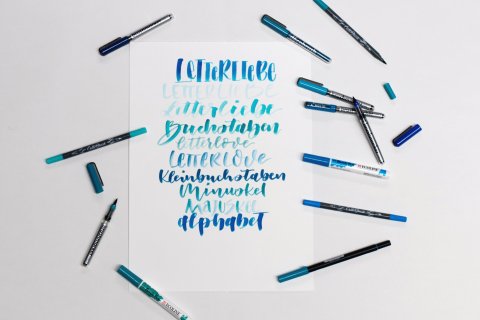 LETTERLIEBE
LETTERLIEBE
letterliebe
Buchstaben
letterlove
LETTERLOVE
Kleinbuchstaben
Minuskel
MAJUSKEL
alphabet